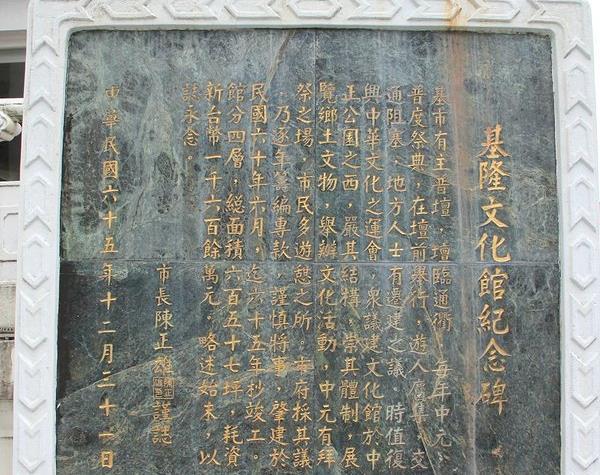 基隆文化館紀念碑
基市有主普壇，壇臨通衢，每年中元，
普度祭典，在壇前舉行，遊人廣集，交
通阻塞，地方人士有遷建之議，時值復
興中華文化之運會，眾議建文化館於中
正公園之西，嚴其結構，崇其體制，展
覽鄉土文物，舉辦文化活動，中元有拜
祭之場，市民多遊憩之所。市府採其議
，乃逐年籌編專款，謹慎將事，肇建於
民國六十年六月，迄六十五年杪竣工。
館分四層，總面積六百五十七坪，耗資
新台幣一千六百餘萬元。略述始末，以
誌永念。
市長陳正雄謹誌
中華民國六十五年十二月三十一日